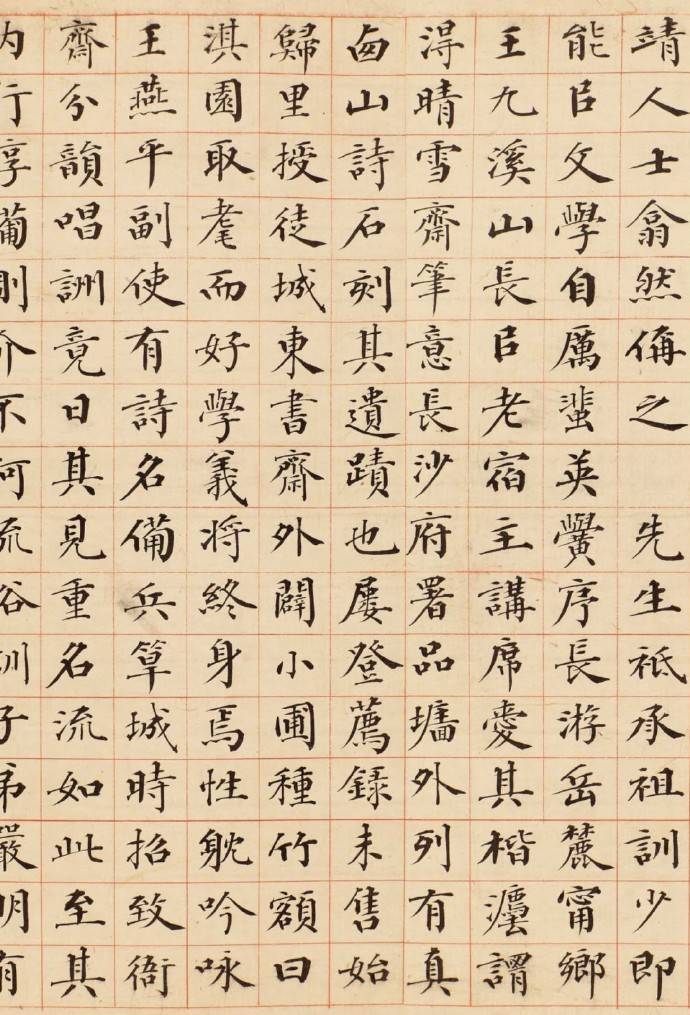 靖人士翕然偁之　先生祗承祖訓少即
能㠯文學自厲蜚英黌序長游岳麓甯鄉
王九溪山長㠯老宿主講席愛其楷灋謂
淂晴雪齋筆意長沙府署品墉外列有真
西山詩石刻其遺蹟也屢登薦錄未售始
歸里授徒城東書齋外闢小圃種竹額曰
淇園取耄而好學義將終身焉性躭吟咏
王燕平副使有詩名備兵筸城時招致衙
齋分韻唱詶竟日其見重名流如此至其
内行享葡則介不阿流俗訓子弟嚴明有